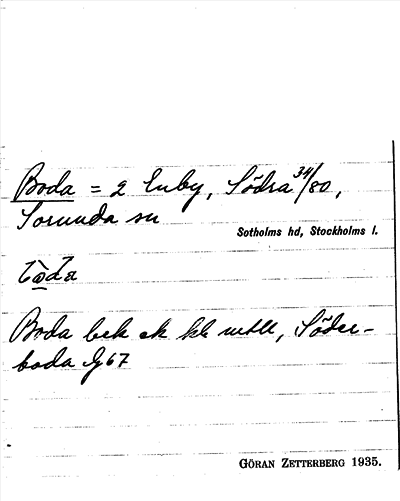 Boda = 2 Enby, Södra 34/80,
Torunda sn
Sotholms hd, Stockholms l.
Boda bek ek kb mtll, Söder-
boda G 67
GÖRAN ZETTERBERG 1935.